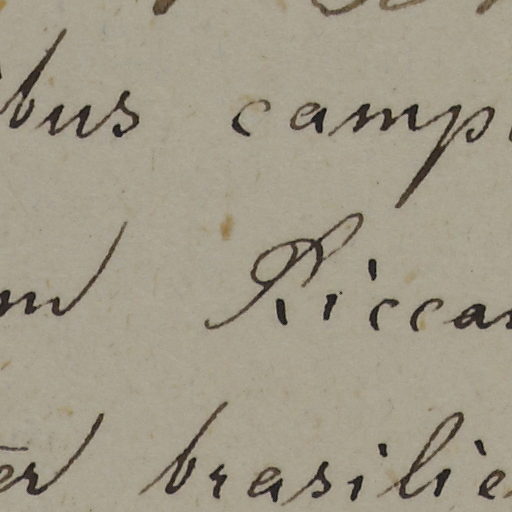 bus camp
nd Riccar
er brasilie